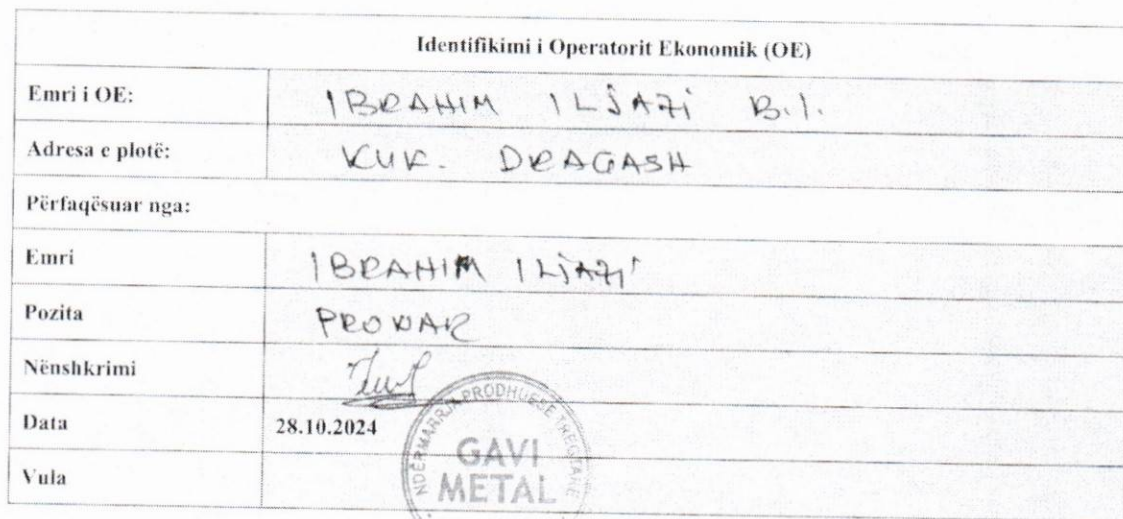 Identifikimi i Operatorit Ekonomik (OE)
Emri i OE: IBRAHIM ILJAZI B.I.
Adresa e plotë: KUK. DRAGASH
Përfaqësuar nga:
Emri IBRAHIM ILJAZI
Pozita PRONAR
Nënshkrimi
Data 28.10.2024
Vula
NDËRMARRJA PRODHUESE TREGTARE
GAVI
METAL